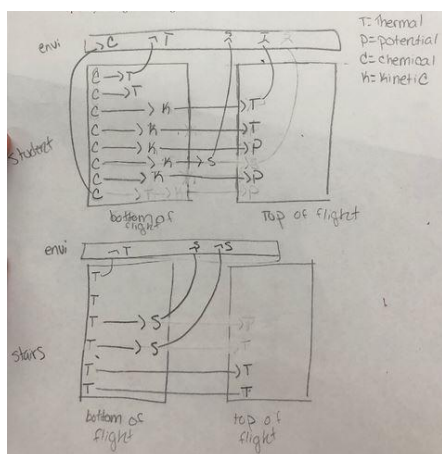 T = Thermal
P = potential
C = chemical
K = kinetic
envi C T
student
C T
C T
C K T
C K T
C K P
C K S
C K P
C T K P
bottom of flight
Top of flight
envi T S S
stairs
T
T
T S T
T S T
T T
T T
bottom of flight
top of flight